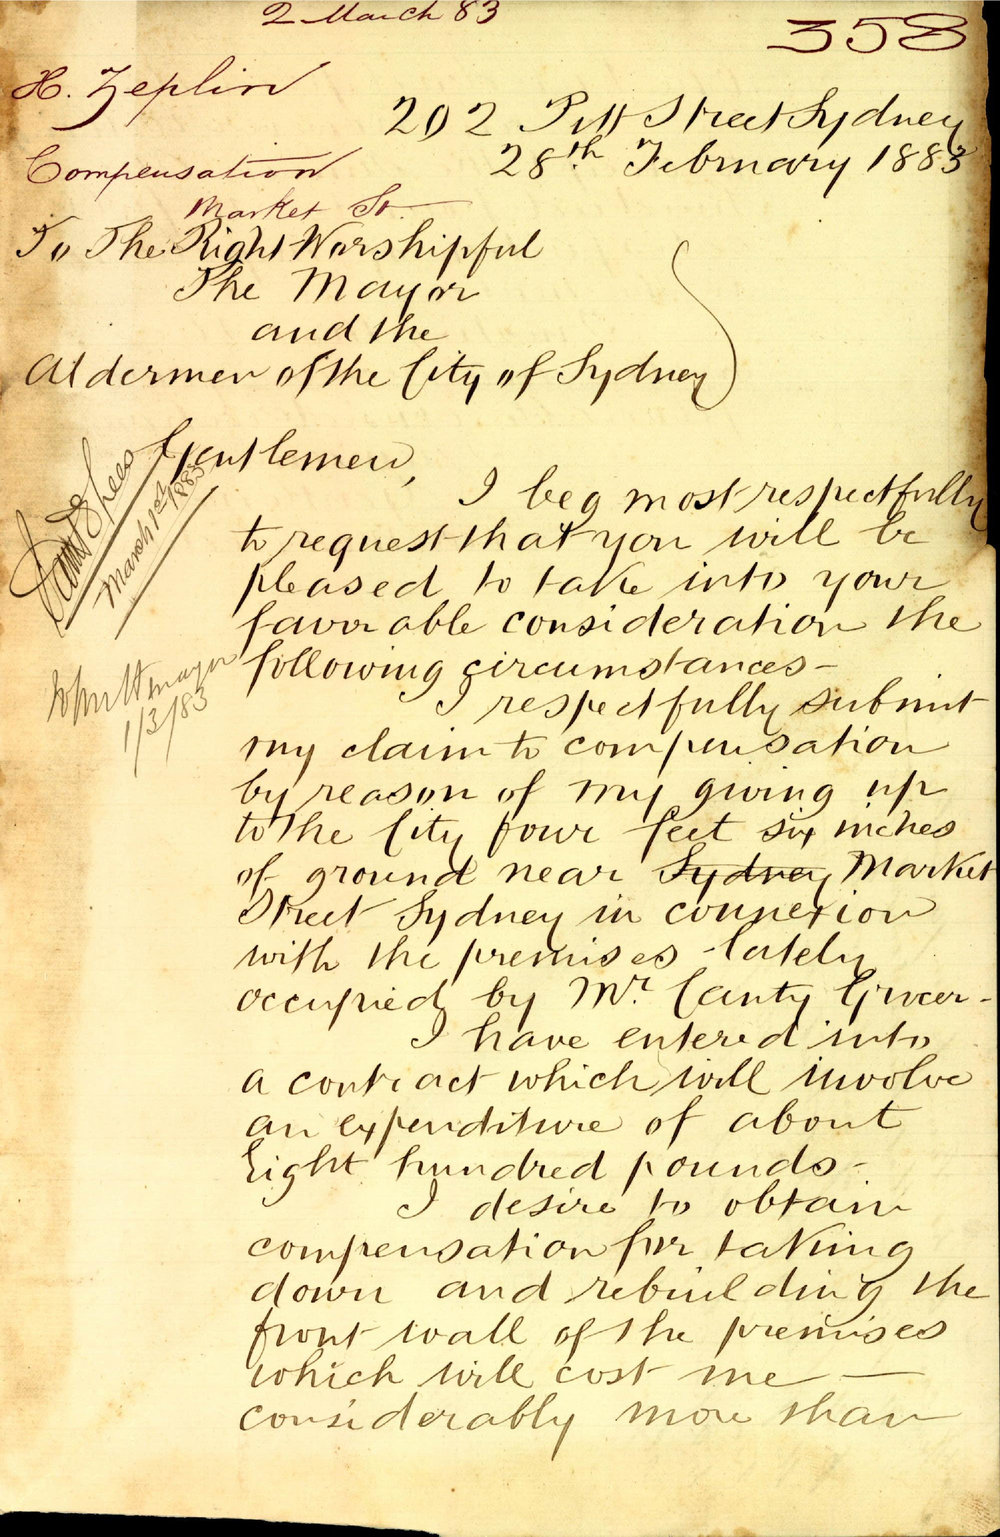 2 March 83
358
H. Zeplin
202 Pitt Street Sydney
28th February 1883
Compensation
Market St.
To The Right Worshipful
The Mayor
and the
Aldermen of the City of Sydney
Gentlemen,
March 1st 1883
mayor
1/3/83
I beg most respectfully
to request that you will be
pleased to take into your
favorable consideration the
following circumstances -
I respectfully submit
my claim to compensation
by reason of my giving up
to the City four feet six inches
of ground near Sydney Market
Street Sydney in connexion
with the premises lately
occupied by Mr. Canty Grocer -
I have entered into
a contract which will involve
an expenditure of about
Eight hundred pounds -
I desire to obtain
compensation for taking
down and rebuilding the
front wall of the premises
which will cost me —
considerably more than